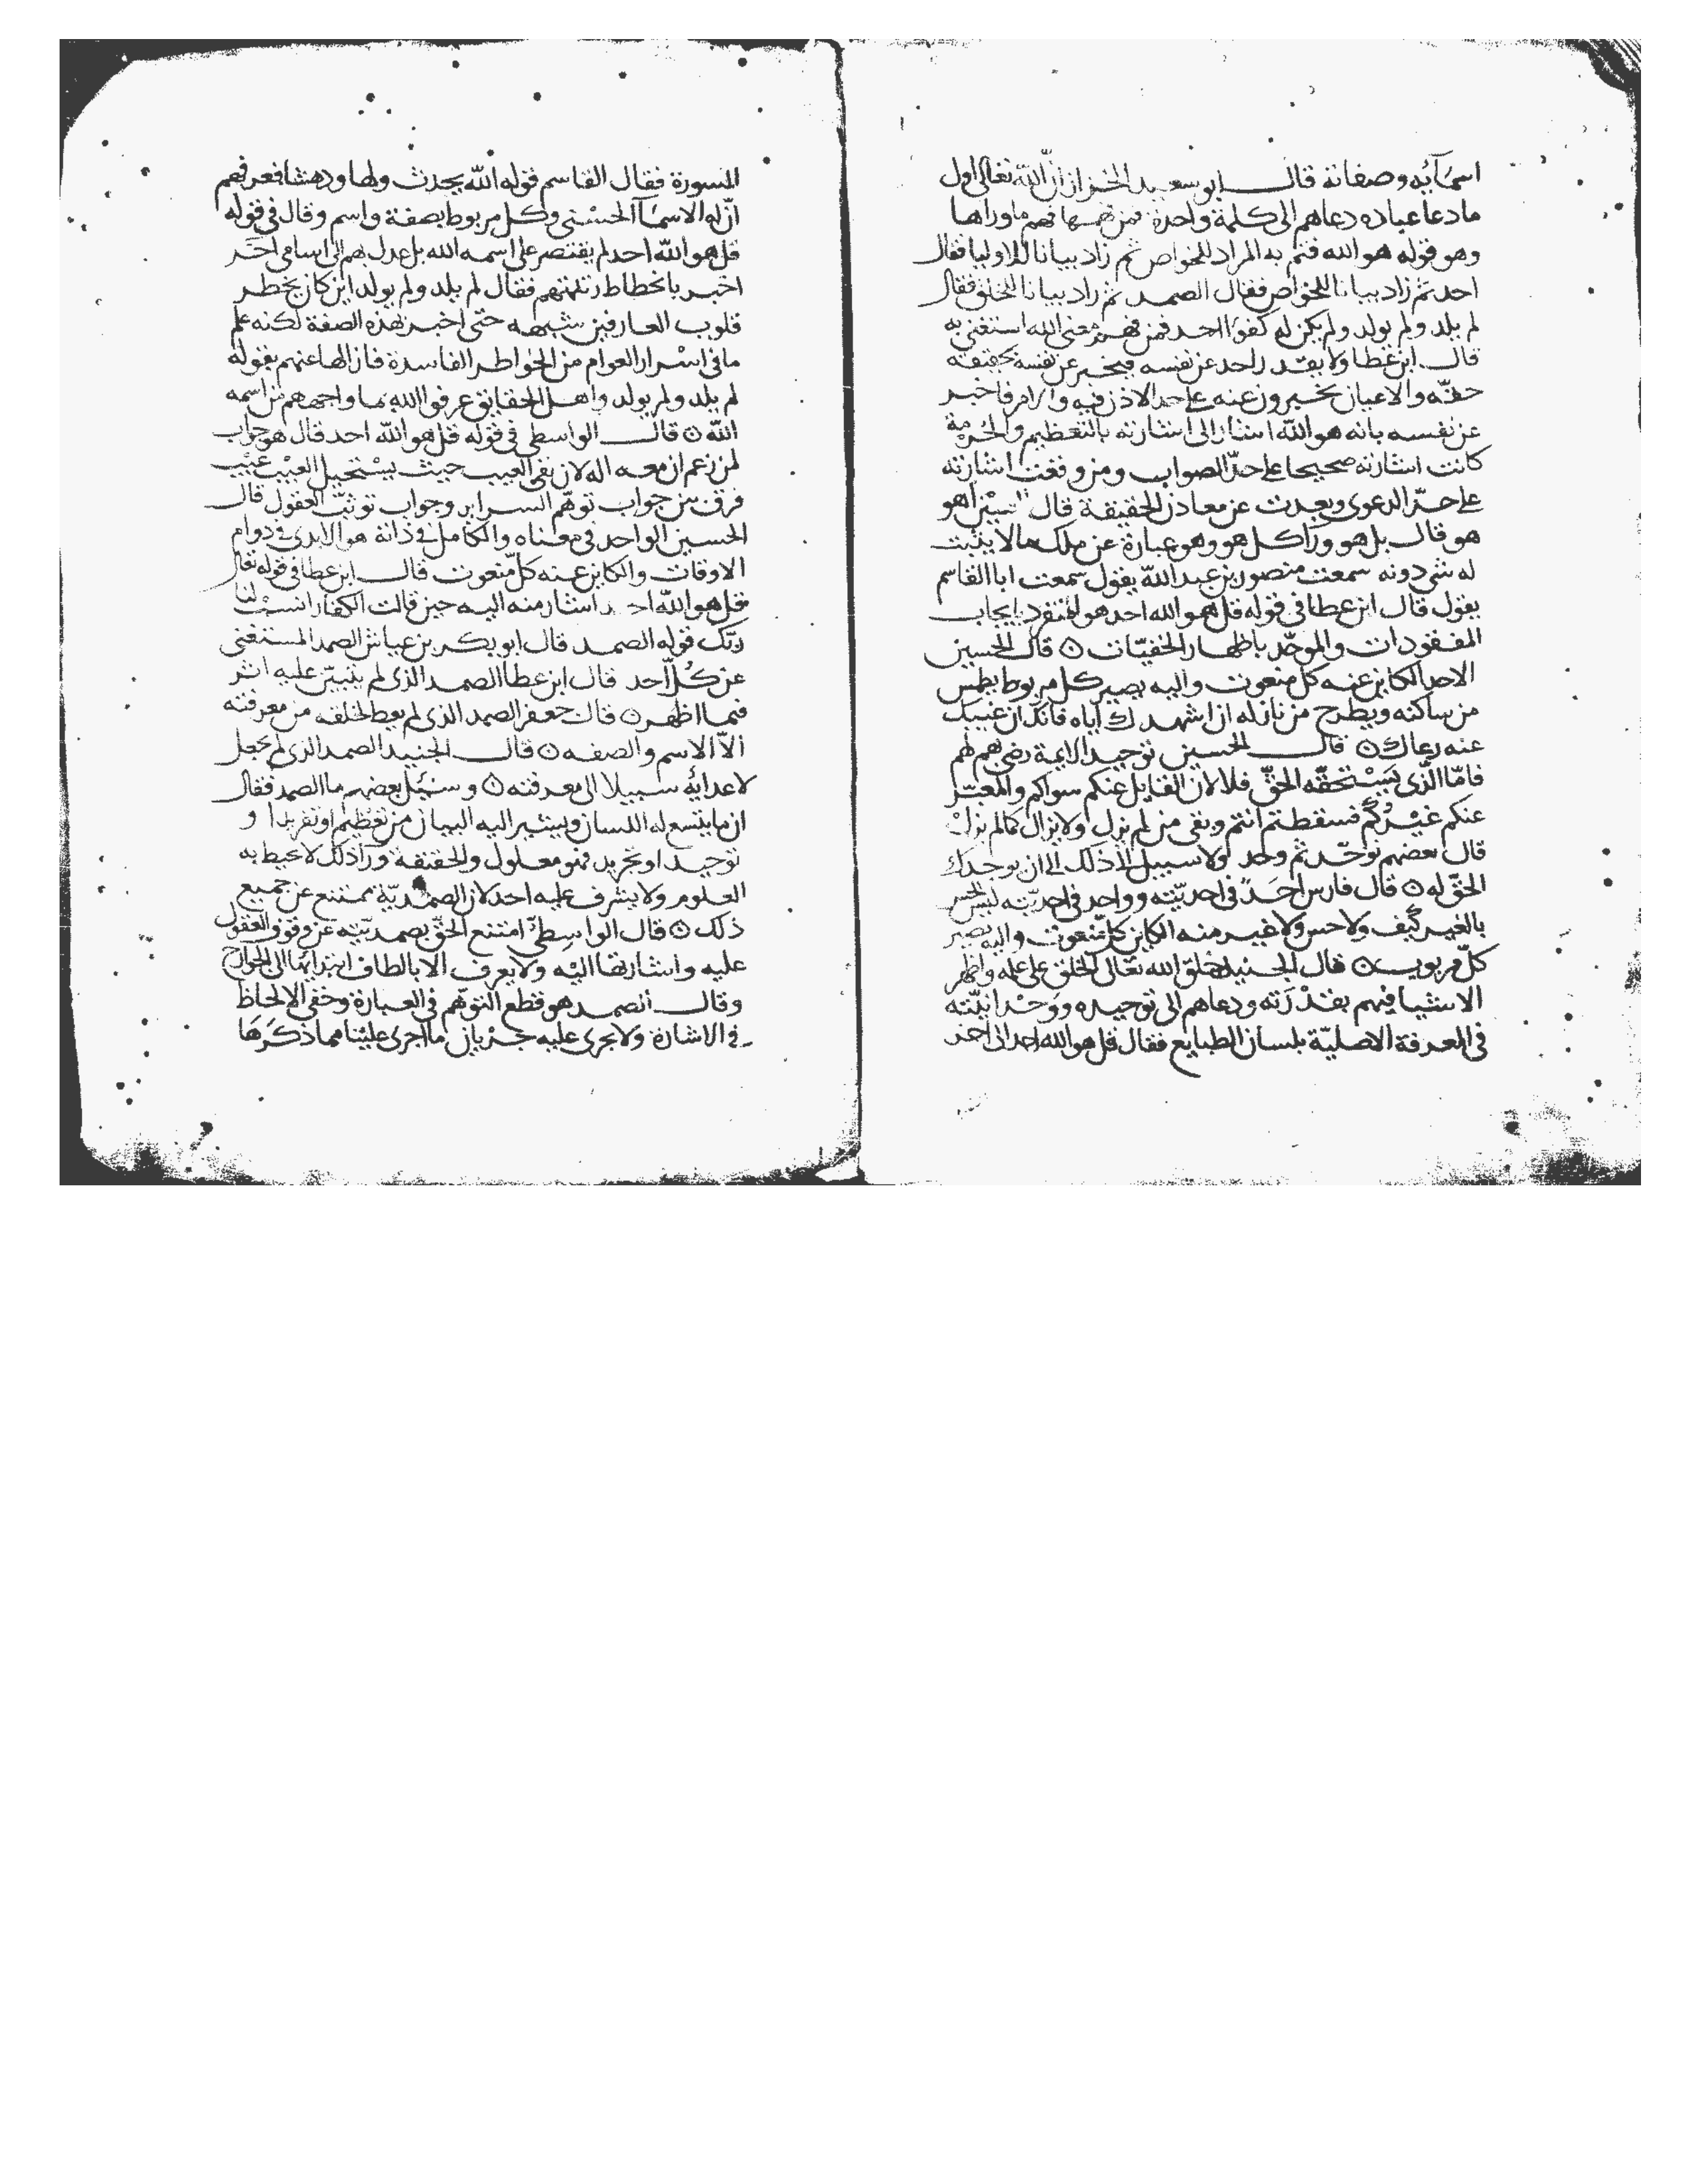 اسمآئه وصفاته قال ابو سعيد الخراز ان الله تعالى اول
ما دعا عباده دعاهم الى كلمة واحدة فمن فهمها فهم ما وراها
وهو قوله هو الله فتم به المراد للخواص ثم زاد بيانا للاوليا فقال
احد ثم زاد بيانا للخواص فقال الصمد ثم زاد بيانا للخلق فقال
لم يلد ولم يولد ولم يكن له كفوا احد فمن فهم معنى الله استغنى به
قال ابن عطا ولا يقدر احد عن نفسه فيخبر عن نفسه بحقيقة
حقه والاعيان يخبرون عنه على حد الاذن فيه والامر فاخبر
عن نفسه بانه هو الله اشار الى اشارته بالتعظيم والحرمة
كانت اشارته صحيحا على حد الصواب ومن وقعت اشارته
على حد الدعوى وبعدت عن معادن الحقيقة قال الحسين اهو
هو قال بل هو ورآ كل هو وهو عبارة عن ملك ما لا يثبت
له شى دونه سمعت منصور بن عبد الله يقول سمعت ابا القاسم
يقول قال ابن عطا فى قوله قل هو الله احد هو المنفرد بايجاب
المفقودات والموحد باظهار الخفيات ۞ قال الحسين
الاحد الكاين عنه كل منعوت واليه يصير كل مربوط يطمس
من ساكنه ويطرح من نازله ان اشهدك اياه فانك ان غيبك
عنه رعاك ۞ قال الحسين توحيد الايمة رضى هم لهم
فامّا الذى يستحقه الحق فلا لان القايل عنكم سواكم والمعبر
عنكم غيركم فسقطتم انتم وبقى من لم يزل ولا يزال كما لم يزل
قال بعضهم توحد ثم وحد ولا سبيل الى ذلك الى ان يوجدك
الحق له ۞ قال فارس احد فى احديته وواحد فى احديته ليس الحس
بالغير كيف ولا حس ولا غير منه الكاين كل منعوت واليه يصير
كل مربوب ۞ قال الجنيد خلق الله تعالى الخلق على علمه واظهر
الاشيا فيهم بقدرته ودعاهم الى توحيده ووحدانيته
فى المعرفة الاصلية بلسان الطبايع فقال قل هو الله احد الى اخر
السورة فقال القاسم قوله الله يحدث ولها ودهشا فعرفهم
ان له الاسمآ الحسنى وكل مربوط بصفة واسم وقال فى قوله
قل هو الله احد لم يقتصر على اسمه الله بل عدل بهم الى اسامى اخر
اخبر بانحطاط رتبتهم فقال لم يلد ولم يولد اين كان يخطر
قلوب العارفين شبهه حتى اخبر بهذه الصفة لكنه علم
ما فى اسرار العوام من الخواطر الفاسدة فازالها عنهم بقوله
لم يلد ولم يولد واهل الحقايق عرفوا الله بما واجههم من اسمه
الله ۞ قال الواسطى فى قوله قل هو الله احد قال هو جواب
لمن زعم ان معه اله لان نفى العيب حيث يستحيل العيب عيب
فرق بين جواب توهم السراير وجواب توثب العقول قال
الحسين الواحد فى معناه والكامل فى ذاته هو الابدى فى دوام
الاوقات والكاين عنه كل منعوت قال ابن عطا فى قوله تعالى
قل هو الله احد اشار منه اليه حين قالت الكفار انسب لنا
ربك قوله الصمد قال ابو بكر بن عياش الصمد المستغنى
عن كل احد قال ابن عطا الصمد الذى لم يتبين عليه اثر
فيما اظهر ۞ قال جعفر الصمد الذى لم يعط لخلقه من معرفته
الا الاسم والصفه ۞ قال الجنيد الصمد الذى لم يجعل
لاعدايه سبيلا الى معرفته ۞ وسئل بعضهم ما الصمد فقال
ان ما يتسع له اللسان ويشير اليه البيان من تعظيم او تفريد او
توحيد او تجريد فهو معلول والحقيقة ورآ ذلك لا يحيط به
العلوم ولا يشرف عليه احد لان الصمدية ممتنع عن جميع
ذلك ۞ قال الواسطى امتنع الحق بصمديته عن وقوف العقول
عليه واشارتها اليه ولا يعرف الا بالطاف ابدائها الى الجوارح
وقال الصمد هو قطع التوهم فى العبارة وخفى الالحاظ
فى الاشارة ولا يجرى عليه جريان ما اجرى علينا مما ذكرها